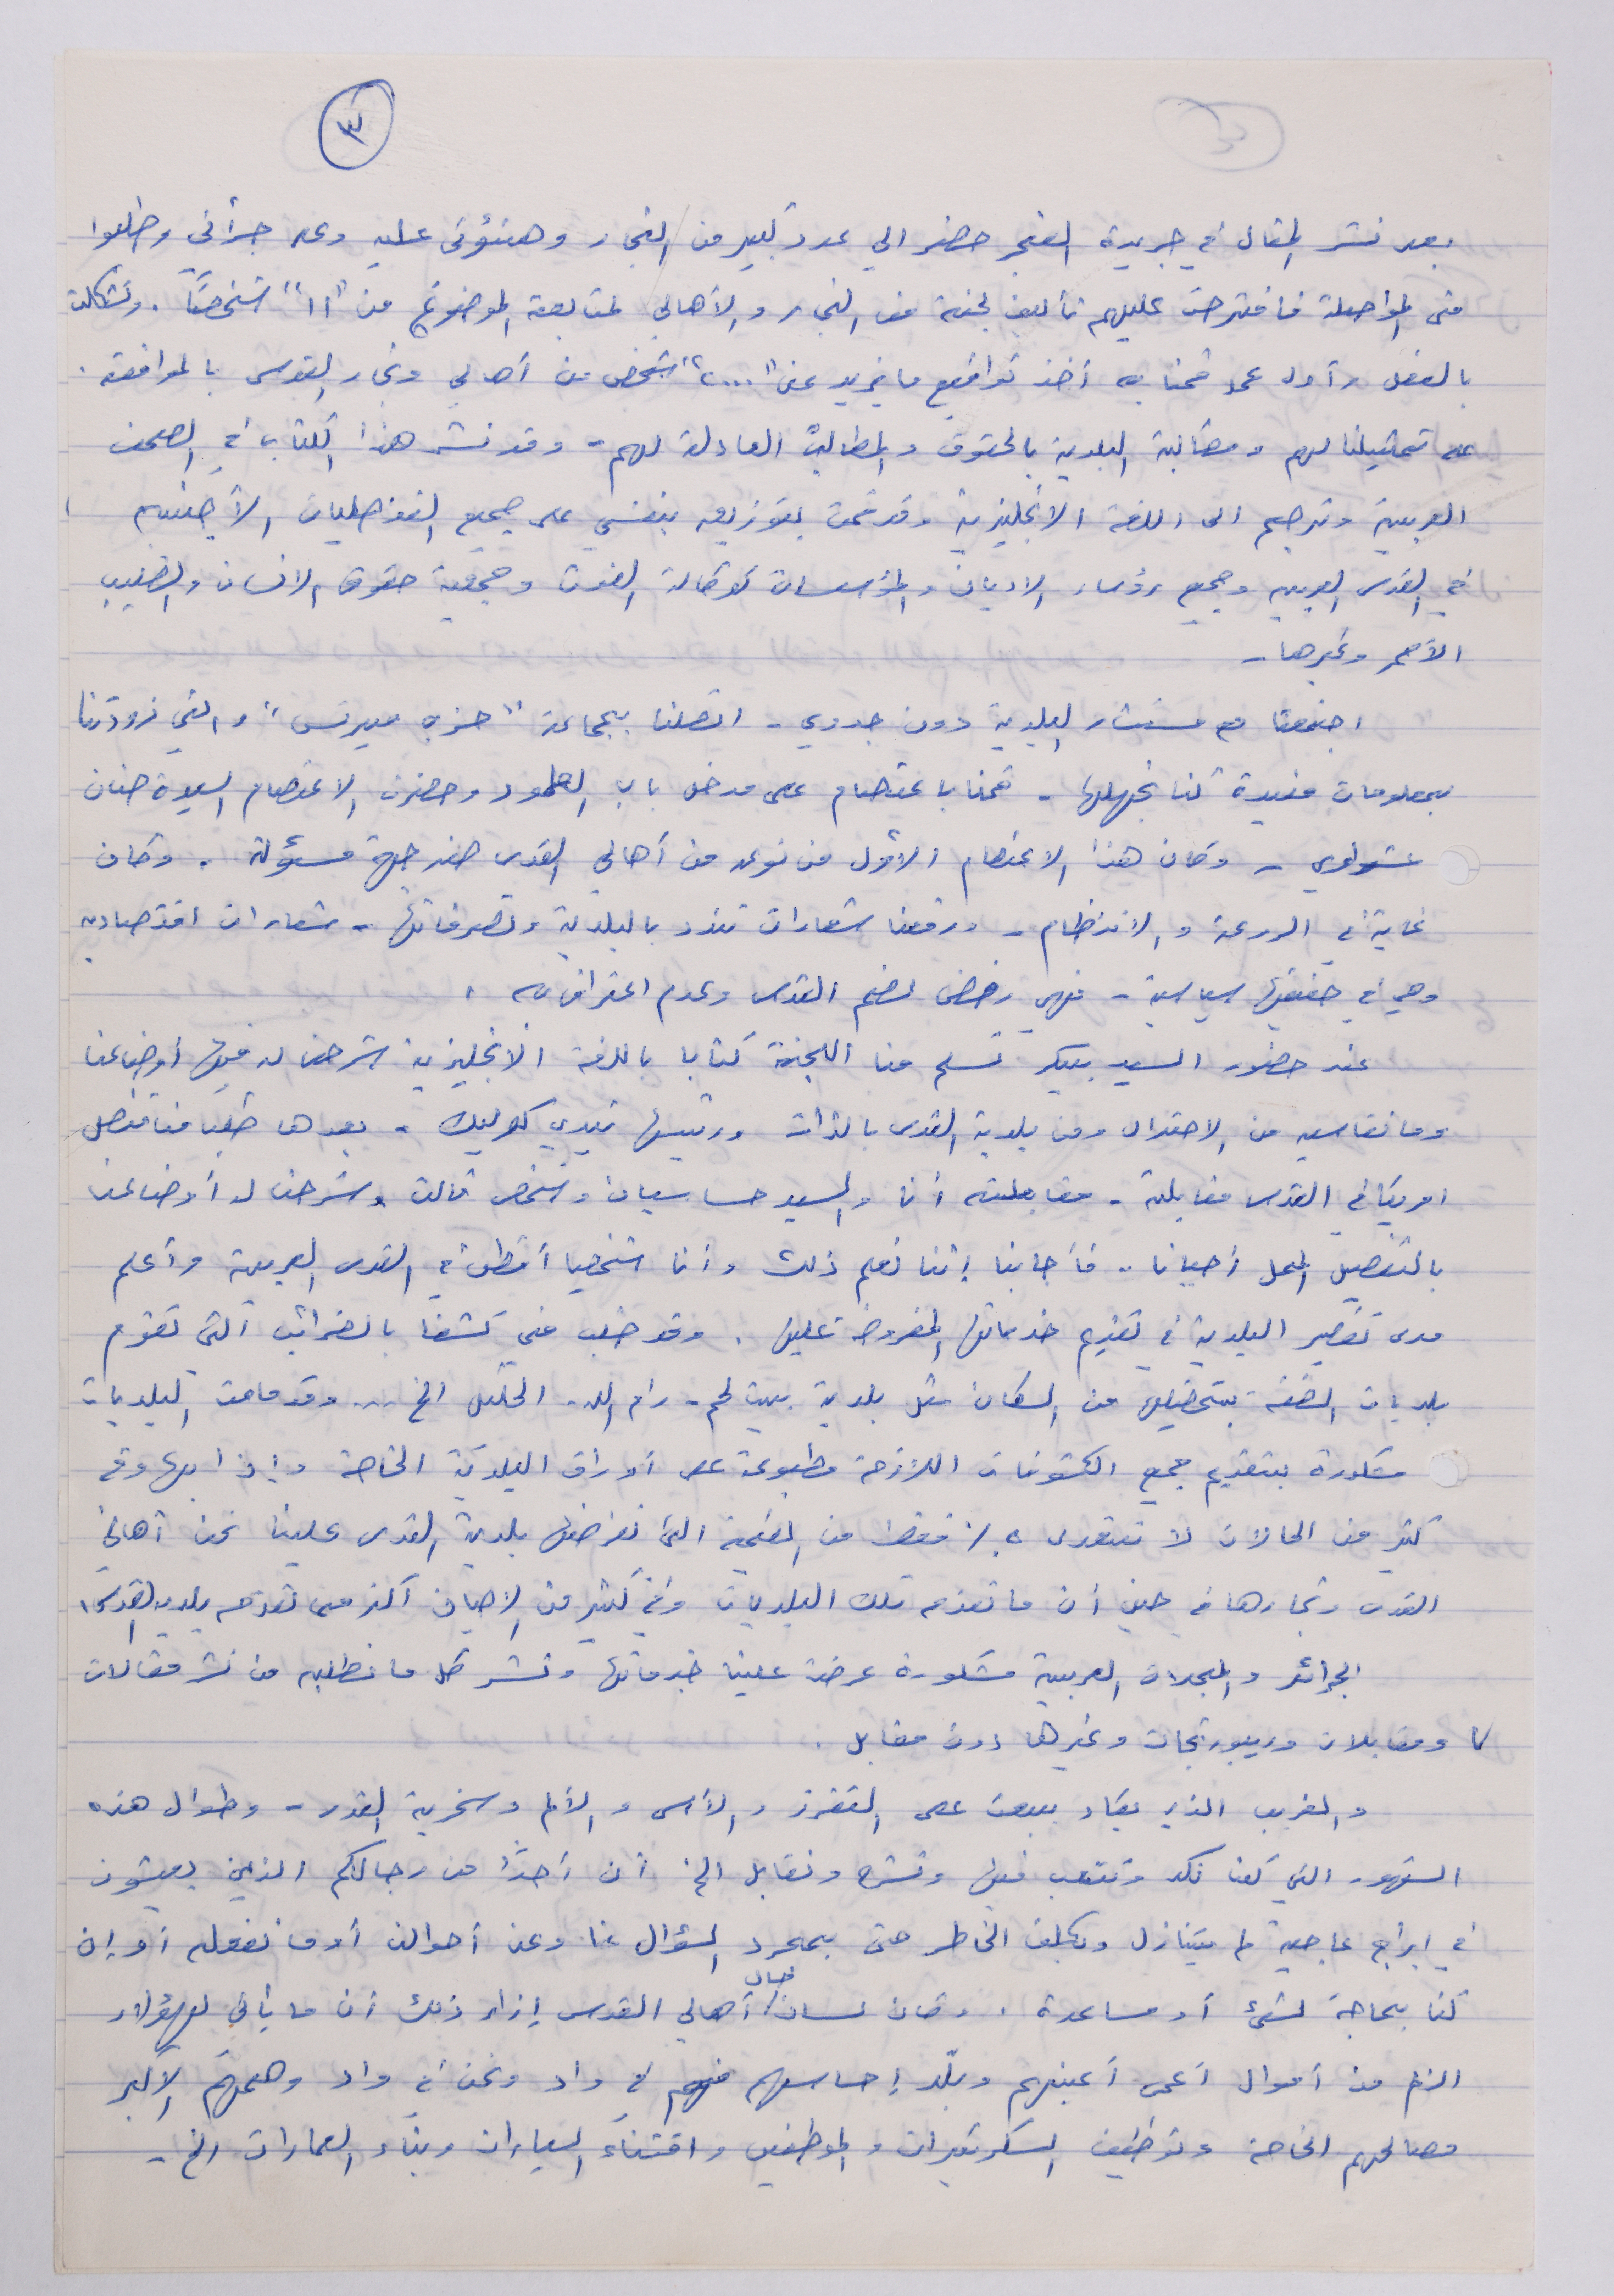 ٣
بعد نشر المقال في جريدة الفجر حضر الي عدد كبير من التجار وهنئوني عليه وعلى جرأتي وطلبوا
مني المواصلة فاقترحت عليهم تأليف لجنة من التجار والأهالي لمتابعة الموضوع من "١١" شخصًا. وتشكلت
بالفعل وأول عمل قمنا به أخذ تواقيع ما يزيد عن "٢٠٠٠" شخص من أهالي وتجار القدس بالموافقة.
على تمثيلنا لهم ومطالبة البلدية بالحقوق والمطالب العادلة لهم - وقد نشر هذا الكتاب في الصحف
العربية وترجم الى اللغة الانجليزية وقد قمت بتوزيعه بنفسي على جميع القنصليات الأجنبيه
في القدس العربيه وجميع رؤساء الاديان والمؤسسات كوكالة الغوث وجمعية حقوق الانسان والصليب
الأحمر وغيرها -
اجتمعنا مع مستشار البلدية دون جدوي - اتصلنا بجماعة "حزب ميرتس" والتي زودتنا
بمعلومات مفيدة كنا نجهلها - قمنا باعتصام على مدخل باب العامود وحضرت الاعتصام السيدة حنان
عشراوي - وكان هذا الاعتصام الأول من نوعه من أهالي القدس ضد جهة مسئولة. وكان
غاية في الروعة والانتظام - ورفعنا شعارات تندد بالبلدية وتصرفاتها - شعارات اقتصاديه
وهي في حقيقتها سياسية - فهي رفض لضم القدس وعدم اعتراف به.
عند حضور السيد بيكر تسلم منا اللجنة كتابا باللغة الانجليزية شرحنا له فيها أوضاعنا
وما نقاسيه من الاحتلال ومن بلدية القدس بالذات ورئيسها تيدي كوليك - بعدها طلب منا قنصل
امريكا في القدس مقابلة - مقابلته أنا والسيد حساسيان وشخص ثالث وشرحنا له أوضاعنا
بالتفصيل الممل أحيانا - فأجابنا إننا نعلم ذلك وأنا شخصيا أقطن في القدس العربية وأعلم
مدى تقصير البلدية في تقديم خدماتها المفروضة عليها. وقد طلب مني كشفا بالضرائب التي تقوم
بلديات الضفة بتحصيلها من السكان مثل بلدية بيت لحم - رام الله - الخليل الخ ... وقد قامت البلديات
مشكورة بتقديم جميع الكشوفات اللازمة مطبوعة على أوراق البلدية الخاصة وإذا بها وفي
كثير من الحالات لا تتعدى ٥٪ فقط من القيمة التي تفرضها بلدية القدس علينا نحن أهالي
القدس وتجارها في حين أن ما تقدمه تلك البلديات وفي كثير من الاحيان أكثر مما تقدمه بلدية القدس.
الجرائد والمجلات العربية مشكورة عرضت علينا خدماتها ونشر كل ما نطلبه من نشر مقالات
ومقابلات وريبورتجات وغيرها دون مقابل.
والغريب الذي يكاد يبعث على التقزز والأسى والألم وسخرية القدر - وطوال هذه
الشهور التي كنا نكد ونتعب فيها ونشرح ونقابل الخ أن أحدًا من رجالكم الذين يعيشون
في ابراج عاجية لم يتنازل ويكلف الخاطر حتى بمجرد السؤال عنا وعن أحوالنا أو ما نفعله أو إن
كنا بحاجة لشئ أو مساعدة. وكان لسان حال أهالي القدس إزاء ذلك أن ما يأتي لهؤلاء
الذم من أموال أعمى أعينهم وبلّد إحساسهم فهم في واد ونحن في واد وهمهم الأكبر
مصالحهم الخاصة وتوظيف السكرتيرات والموظفين واقتناء السيارات وبناء العمارات الخ -